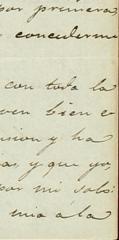 por primera
concederme
con toda la
ven bien e
sion y ha
as, y que yo,
por mi solo
mia á la